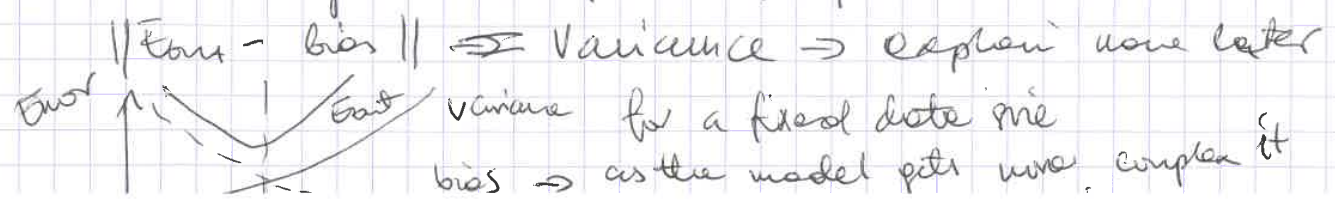 ||Eout - bias|| => Variance => explain more later
Error Eout variance for a fixed data size
bias => as the model gets more complex it